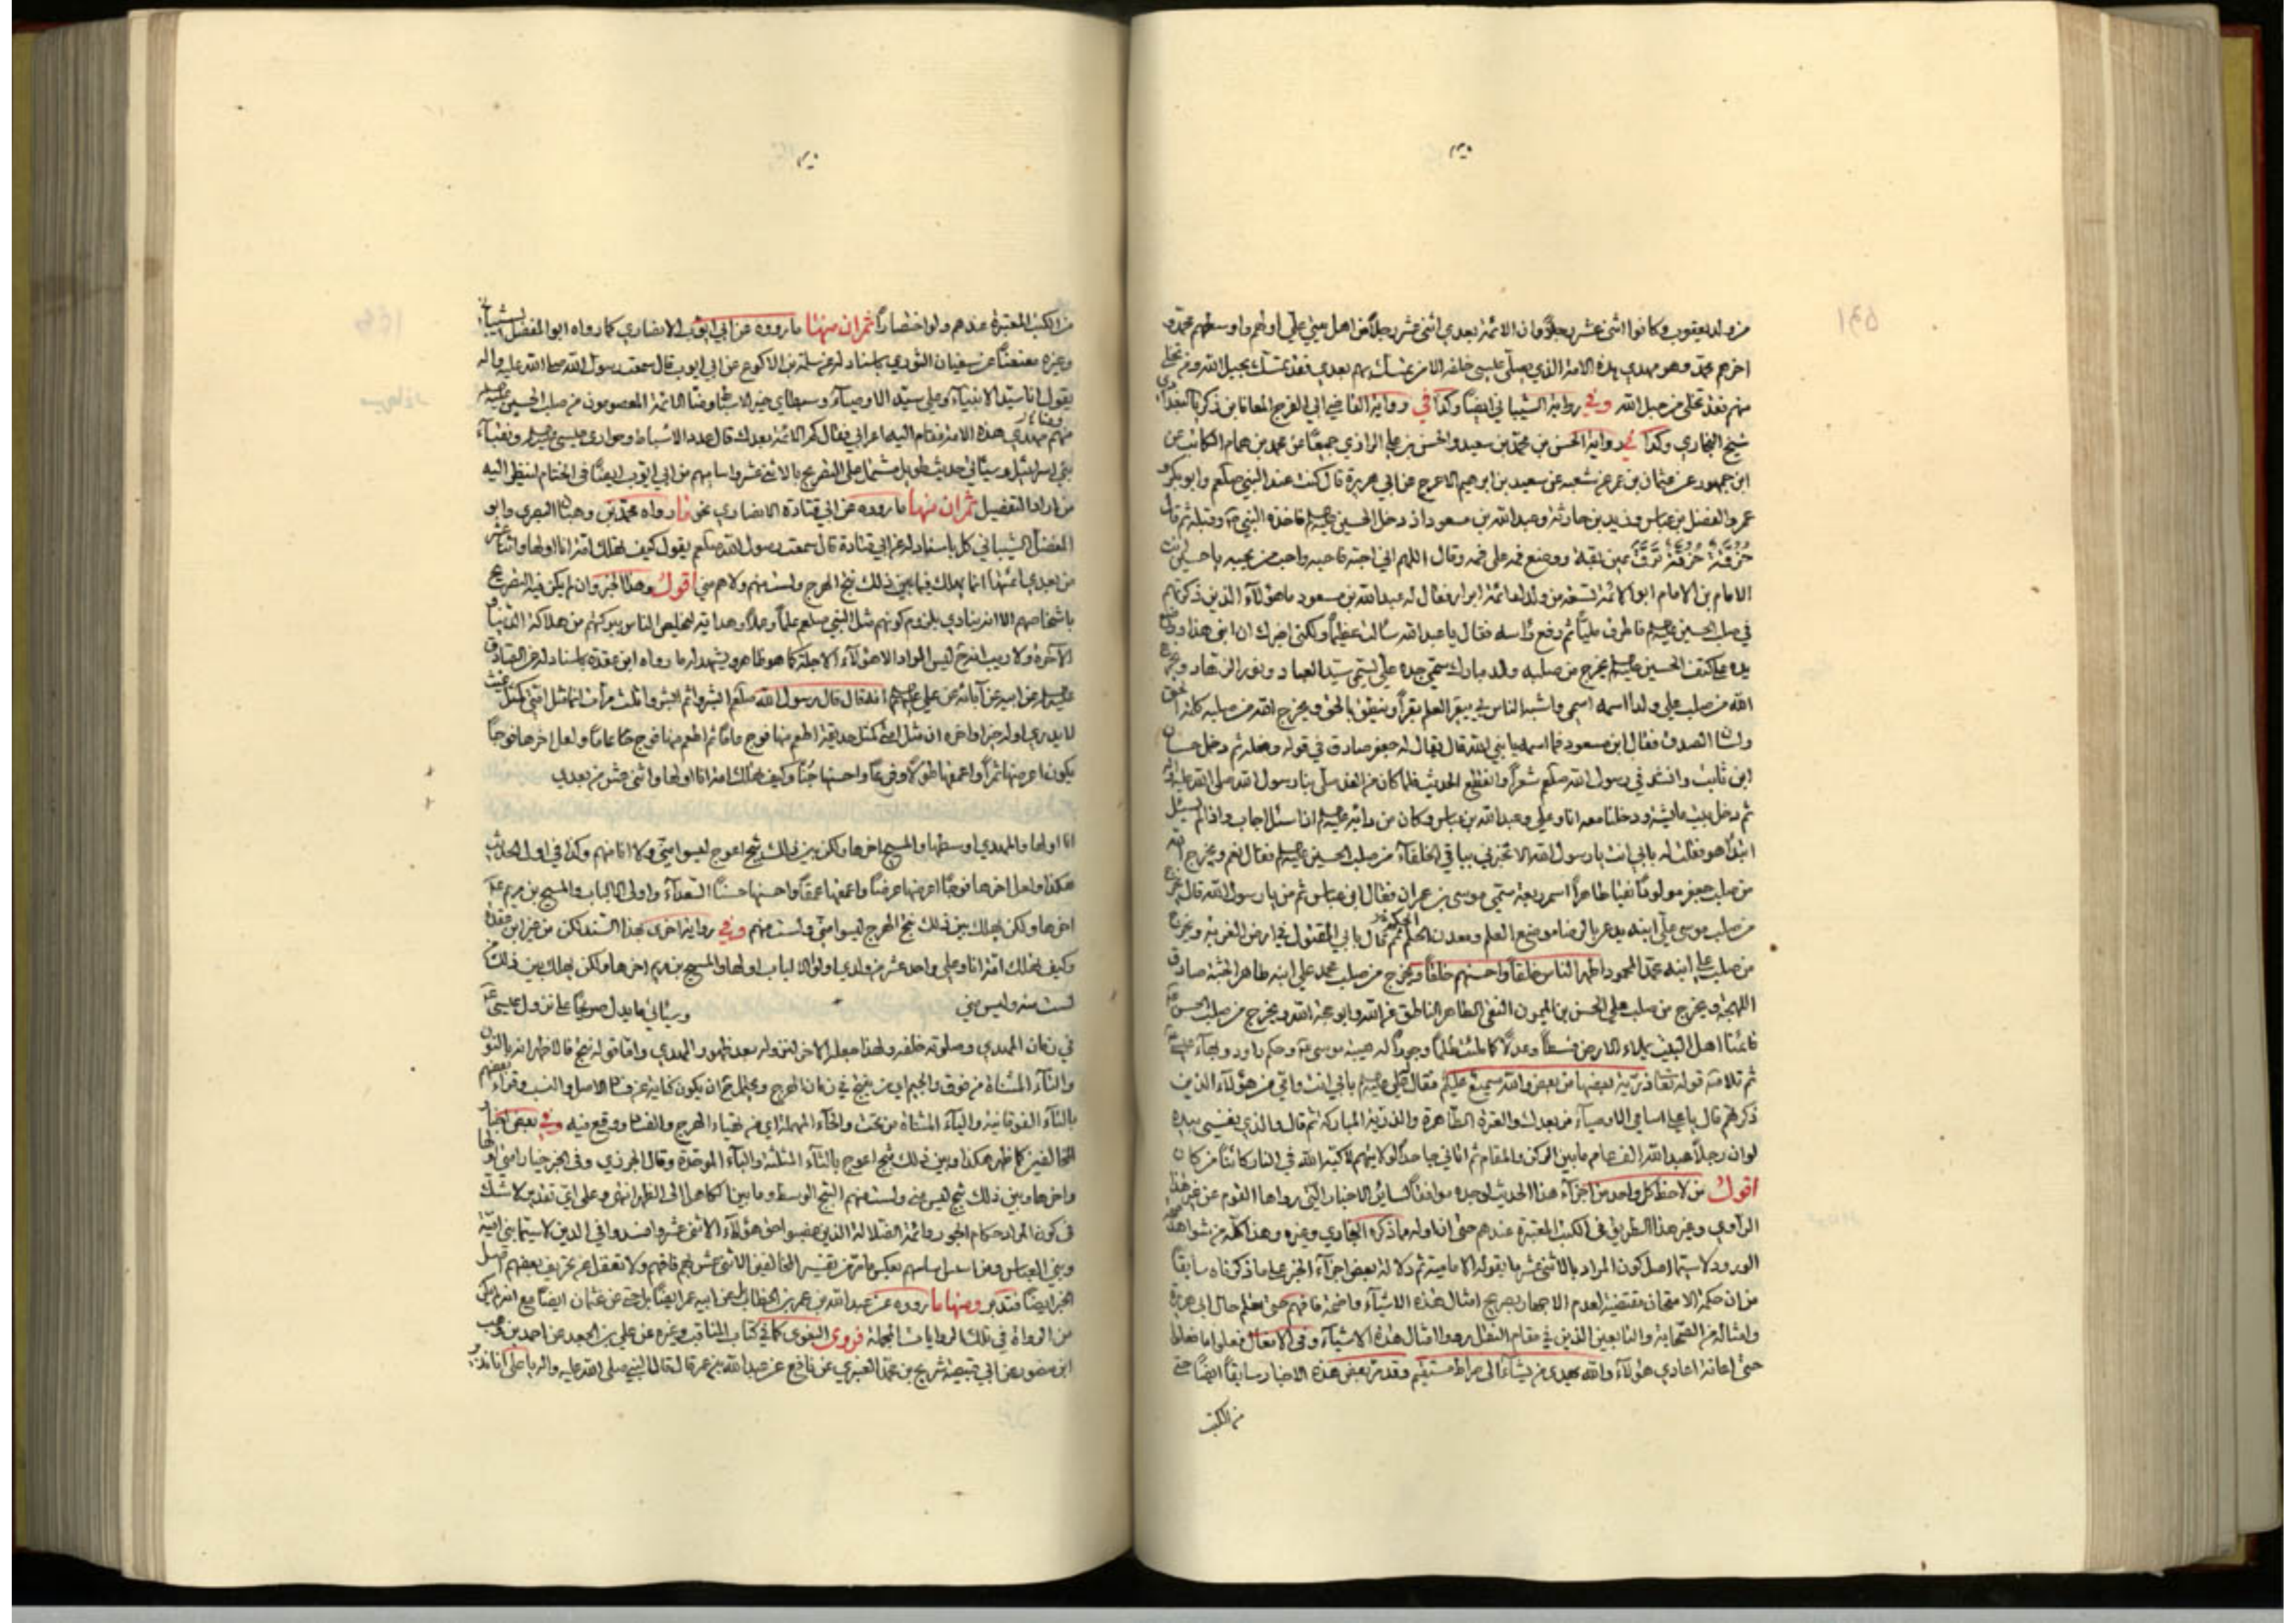 من ولد يعقوب وكانوا اثنى عشر رجلا وان الائمة بعدي اثنى عشر رجلا من اهل بيتي علي اولهم واوسطهم محمد و
اخرهم محمد وهو مهدي هذه الامة الذي يصلي عيسى خلفه الا من تمسك بهم بعدي فقد تمسك بحبل الله ومن تخلى
منهم فقد تخلى من حبل الله وفي رواية الشيباني ايضا وكذا في رواية القاضي ابي الفرج المعافا بن ذكريا البغدادي
شيخ البخاري وكذا في رواية الحسن بن محمد بن سعيد والحسن بن علي الرازي جميعا عن محمد بن همام الكاتب عن
ابن جمهور عن عثمان بن عمر عن شعبه عن سعيد بن ابرهيم الاعرج عن ابي هريرة قال كنت عند النبي صلعم وابوبكر و
عمر والفضل بن عباس وزيد بن حارثة وعبدالله بن مسعود اذ دخل الحسين فاخذه النبي وقبله ثم قال
حزقة حزقة ترق عين بقة ووضع فمه على فمه وقال اللهم اني احبه فاحبه واحب من يحبه يا حسين انت
الامام بن الامام ابو الائمة التسعة من ولدك ائمة ابرار فقال له عبدالله بن مسعود ما هؤلاء الذين ذكرتهم
في صلب الحسين فاطرق مليا ثم رفع راسه فقال يا عبدالله سالت عظيما ولكني اخبرك ان ابني هذا ووضع
يده على كتف الحسين يخرج من صلبه ولد مبارك سمي جده علي يسمى سيد العباد ونور الزهاد ويخرج
الله من صلب علي ولدا اسمه اسمي واشبه الناس بي يبقر العلم بقرا وينطق بالحق ويخرج الله من صلبه كلمة الحق
ولسان الصدق فقال ابن مسعود فما اسمه يا نبي الله قال يقال له جعفر صادق في قوله وفعله ثم دخل حسان
ابن ثابت وانشد في رسول الله صلعم شعرا وانقطع الحديث فلما كان من الغد صلى بنا رسول الله صلى الله عليه واله
ثم دخل بيت عايشة ودخلنا معه انا وعلي وعبدالله بن عباس وكان من دابه اذا سئل اجاب واذا لم يسئل
ابتدا هو فقلت له بابي انت يا رسول الله الا تخبرني بباقي الخلفاء من صلب الحسين فقال نعم ويخرج الله
من صلب جعفر مولودا نقيا طاهرا اسمر ربعة سمي موسى بن عمران فقال ابن عباس ثم من يا رسول الله قال يخرج
من صلب موسى علي ابنه يدعى بالرضا موضع العلم ومعدن الحلم ثم قال بابي المقتول في ارض الغربة ويخرج
من صلب علي ابنه محمد المحمود اطهر الناس خلقا واحسنهم خلقا ويخرج من صلب محمد علي ابنه طاهر الجنبة صادق
اللهجة ويخرج من صلب علي الحسن بن الميمون النقي الطاهر الناطق عن الله وابو حجة الله ويخرج من صلب الحسن
قائمنا اهل البيت يملاء الارض قسطا وعدلا كما ملئت ظلما وجورا له هيبة موسى وحكم داود وبهاء عيسى
ثم تلا منه قوله تعا ذرية بعضها من بعض والله سميع عليم فقال علي بابي انت وامي من هؤلاء الذين
ذكرتهم قال يا علي اسامي الاوصياء من بعدك والعترة الطاهرة والذرية المباركة ثم قال والذي نفسي بيده
لو ان رجلا عبدالله الف عام ما بين الركن والمقام ثم اتاني جاحدا لولايتهم لاكبه الله في النار كائنا من كان
اقول من لاحظ كل واحد من اجزاء هذا الحديث لوجده موافقا لساير الاخبار التي رواها القوم عن غير هذا
الراوي وغير هذا الطريق في الكتب المعتبرة عندهم حتى ان اوله ما ذكره البخاري وغيره وهذا كله من شواهد
الورود لا سيما اصل كون المراد بالاثنى عشر ما يقوله الامامية ثم دلالة بعض اجزاء الخبر على ما ذكرناه سابقا
من ان حكمة الامتحان مقتضية لعدم الاجهار بصريح امثال هذه الاشياء واضحة فافهم حتى تعلم حال ابي هريرة
وامثاله من الصحابة والتابعين الذين في مقام النقل رووا امثال هذه الاشياء وفي الافعال فعلوا ما فعلوا
حتى اعانة اعادي هؤلاء والله يهدي من يشاء الى صراط مستقيم وقد مر بعض هذه الاخبار سابقا ايضا حتى
من الكتب
من الكتب المعتبرة عندهم ولو اختصارا ثم ان منها ما رووه عن ابي ايوب الانصاري كما رواه ابو المفضل الشيباني
وغيره معنعنا عن سفيان الثوري باسناد له عن سلمة بن الاكوع عن ابي ايوب قال سمعت رسول الله صلى الله عليه واله
يقول انا سيد الانبياء وعلي سيد الاوصياء وسبطاي خير الاسباط ومنا الائمة المعصومون من صلب الحسين
ومنا مهدي هذه الامة فقام اليه اعرابي فقال كم الائمة بعدك قال عدد الاسباط وحواري عيسى ونقباء
بني اسرائيل وسيأتي حديث طويل مشتمل على التصريح بالاثنى عشر واساميهم من ابي ايوب ايضا في الختام لينظر اليه
من اراد التفصيل ثم ان منها ما رووه عن ابي قتادة الانصاري نحو ما رواه محمد بن وهبان البصري وابو
المفضل الشيباني كل باسناد له عن ابي قتادة قال سمعت رسول الله صلعم يقول كيف تهلك امة انا اولها واثنا عشر
من بعدي ائمتها انما يهلك فيما بين ذلك نتج الهرج ولست منهم ولا هم مني اقول وهذا الخبر وان لم يكن فيه التصريح
باشخاصهم الا انه ينادي بلزوم كونهم مثل النبي صلعم علما وعملا وهداية لتخليص الناس ببركتهم من هلاكة الدنيا و
الآخرة ولا ريب انه ح ليس المراد الا هؤلاء الاجلة كما هو ظاهر ويشهد له ما رواه ابن عقدة باسناد له عن الصادق
عن ابيه عن آبائه عن علي انه قال قال رسول الله صلعم ابشروا ثم ابشروا ثلث مرات انما مثل امتي كمثل غيث
لا يدري اوله خير او اخره ان مثل امتي كمثل حديقة اطعم منها فوج عاما ثم اطعم منها فوج عاما ولعل اخرها فوجا
يكون اعرضها بحرا واعمقها طولا وفرعا واحسنها جنا وكيف تهلك امة انا اولها واثنى عشر من بعدي
انا اولها والمهدي اوسطها والمسيح اخرها ولكن بين ذلك ثبج اعوج ليسوا مني ولا انا منهم وكذا في اول الحديث
هكذا ولعل اخرها فوجا اعرضها عرضا واعمقها عمقا واحسنها حسنا السعداء واولى الالباب والمسيح بن مريم
اخرها ولكن يهلك بين ذلك نتج الهرج ليسوا مني ولست منهم وفي رواية اخرى بهذا السند لكن من غير ابن عقدة
وكيف تهلك امة انا وعلي واحد عشر من ولدي اولوا الالباب اولها والمسيح بن مريم اخرها ولكن يهلك بين ذلك من
لست منه وليس مني وسيأتي ما يدل صريحا على نزول عيسى
في زمان المهدي وصلوته خلفه ولهذا جعله الاخر لنزوله بعد ظهور المهدي واما قوله نتج فالاظهر انه بالنون
والتاء المثناة من فوق والجيم اي من ينتج في زمان الهرج ويحتمل ان يكون كناية عن فساد الاصل والنسب وقراء بعضهم
بالتاء الفوقانية والياء المثناة من تحت والحاء المهملة اي من تهياء الهرج والفساد ووقع فيه وفي بعض اخبار
المخالفين كما ظهر هكذا وبين ذلك ثبج اعوج بالثاء المثلثة والباء الموحدة وقال الجزري وفي الخبر خيار امتي اولها
واخرها وبين ذلك ثبج ليس منه ولست منهم الثبج الوسط وما بين الكاهل الى الظهر انتهى وعلى اي تقدير لا شك
في كون المراد حكام الجور وائمة الضلالة الذين غصبوا حق هؤلاء الاثنى عشر وافسدوا في الدين لا سيما بني امية
وبني العباس بعكس ما مر من تفسير المخالفين الاثنى عشر بهم فافهم ولا تغفل عن تحريف بعضهم اصل
الخبر ايضا فتدبر ومنها ما رووه عن عبدالله بن عمر بن الخطاب بل عن ابيه عمر ايضا بل حتى عن عثمان ايضا مع انه
من الرواة في تلك الروايات المجملة فروى البغوي كما في كتاب المناقب وغيره عن علي بن الجعد عن احمد بن وهب
ابن منصور عن ابي قبيصة شريح بن محمد العنبري عن نافع عن عبدالله بن عمر قال قال النبي صلى الله عليه واله يا علي انا نذير